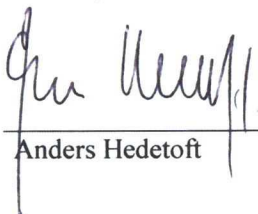 Anders Hedetoft